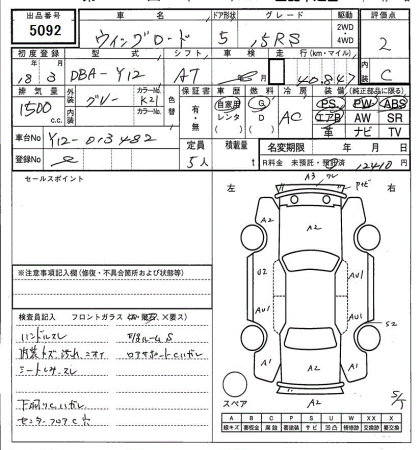 出品番号 車名 ドア形状 グレード 駆動 評価点
5092 ウィングロード 5 15RS 2WD・4WD 2
初度登録 型式 シフト 車検 走行(km・マイル) 内装
18 3 DBA-Y12 AT 年 月 40,847 C
排気量 外装色 カラーNo. 色替 保証書 車歴 燃料 冷房 装備(純正部品に限る)
1500 c.c. グレー K21 有・無 自家用 レンタ G D AC PS PW ABS
エアB AW SR
革 ナビ TV
車台No Y12-013482 定員 積載量 名変期限 年 月 日
登録No 5人 t R料金 未預託・預託済 12410 円
セールスポイント
左 右
A3 ワレ
A2
A2
A2
U2
AU1
AU1
AU1
A2
S2
A1
A1
A2
※注意事項記入欄(修復・不具合箇所および状態等)
検査員記入 フロントガラス (×要ス)
ハンドルスレ
内装キズ 汚れ ニオイ
シートヨゴレスレ
下廻りCハガレ
センターフロアC穴
スペア
S/T
A B C P S U W XX X
線キズ 要板金 腐蝕 要塗装 サビ 凹凸 修復跡 交換跡 要交換